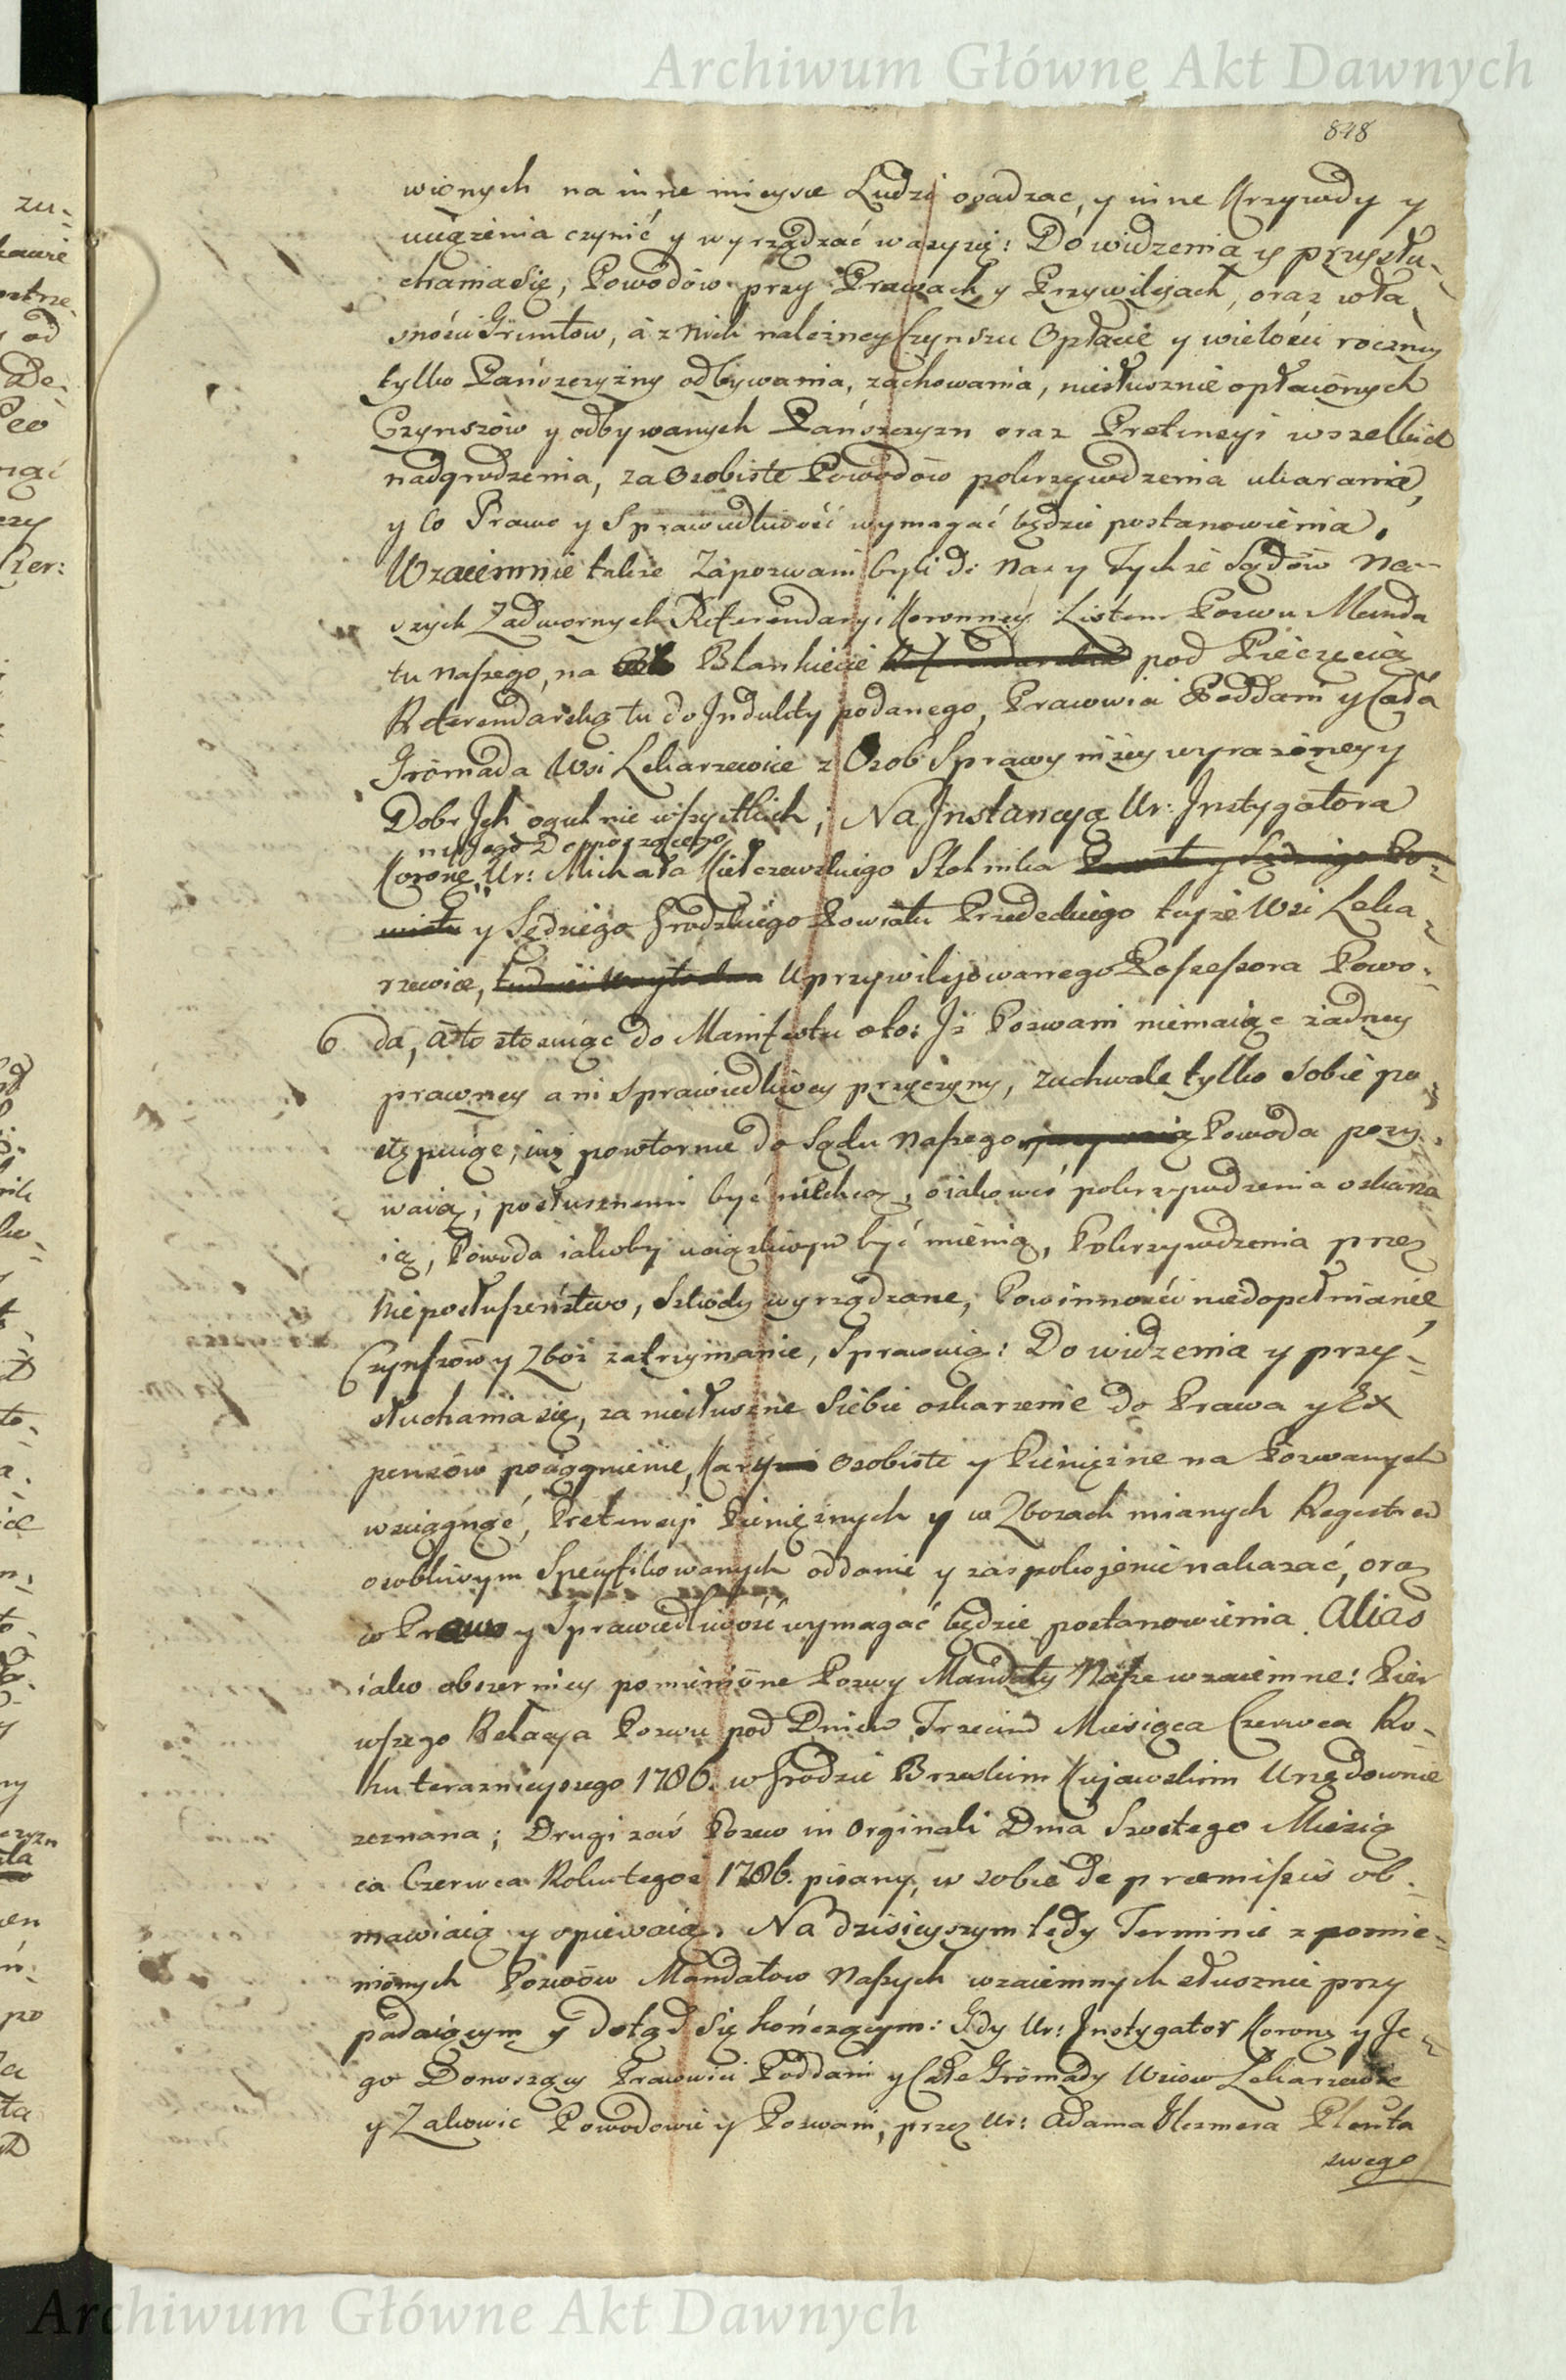 Archiwum Główne Akt Dawnych
848
wionych na inne mieysce Ludzi osadzac, y inne Krzywdy y
uciązenia czynić y wyrządzać waszyię: Do widzenia y przysłu-
chania się, Powodów przy Prawach y Przywileiach, oraz wła
sności Gruntow, a z nich należney Czynszu Opłacie y wielości roczney
tylko Pańszczyzny odbywania, zachowania, niesłusznie opłaconych
Czynszów y odbywanych Pańszczyzn oraz Pretensyi wszelkich
nadgrodzenia, za Osobiste Powodów pokrzywdzenia ukaranie,
y co Prawo y Sprawiedliwość wymagać będzie postanowienia.
Wzaiemnie także Zapozwani byli do Nas y Tychże Sądów Na-
szych Zadwornych Referendaryi Koronney Listem Pozwu Manda
tu naszego, na Blankiecie pod Pieczęcią
Referendarską tu do Indukty podanego, Pracowici Poddani y Cała
Gromada Wsi Lekarzewice z Osob Sprawy niżey wyrażoney y
Dobr Ich ogulnie wszystkich; Na Instancyą Ur: Instygatora
niżego Donoszącego
Koronę Ur: Michała Kiełczewskiego Stolnika
y Sędziego Grodzkiego Powiatu Przedeckiego teyże Wsi Leka-
rzewice, Uprzywilejowanego Possessora Powo-
6 da, a to stosuiąc do Manifestu oto: Iż Pozwani niemaiąc żadney
prawney ani sprawiedliwey przyczyny, zuchwale tylko sobie po
stępuiąc, iuż powtornie do Sądu Naszego Powoda pozy-
waią, posłusznemi być niechcą, o iakoweś pokrzywdzenia oskarża
ią, Powoda iakoby uciążliwym być mienią, Pokrzywdzenia przez
Nieposłuszeństwo, Szkody wyrządzone, Powinności niedopełnianie,
Czynszów y Zboż zatrzymanie, Sprawuią: Do widzenia y przy-
słuchania się, za niesłuszne Siebie oskarzenie do Prawa y Ex
pensów pociągnienie, Kary Osobiste y Pieniężne na Pozwanych
wciągnąć, Pretensyi Pieniężnych y w Zbożach mianych Regestrem
osobliwym Specyfikowanych oddanie y zaspokojenie nakazać, oraz
co Prawo y Sprawiedliwość wymagać będzie postanowienia. Alias
iako obszerniey pomienione Pozwy Mandaty Nasze wzaiemne: Pier
wszego Relacya Pozwu pod Dniem Trzecim Miesiąca Czerwca Ro-
ku teraznieyszego 1786. w Grodzie Brzeskim Kujawskim Urzędownie
zeznana; Drugi zaś Pozew in Orginali Dnia Szostego Miesią
ca Czerwca Roku tegoż 1786. pisany, w sobie de præmissis ob-
mawiaią y opiewaią. Na dzisieyszym tedy Terminie z pomie-
nionych Pozwów Mandatow Naszych wzaiemnych słusznie przy
padaiącym y dotąd się kończącym: Gdy Ur: Instygator Korony y Je-
go Donoszący Pracowici Poddani y Całe Gromady Wsiów Lekarzewice
y Zakowic Powodowie y Pozwani, przez Ur: Adama Plenta
swego
Archiwum Główne Akt Dawnych